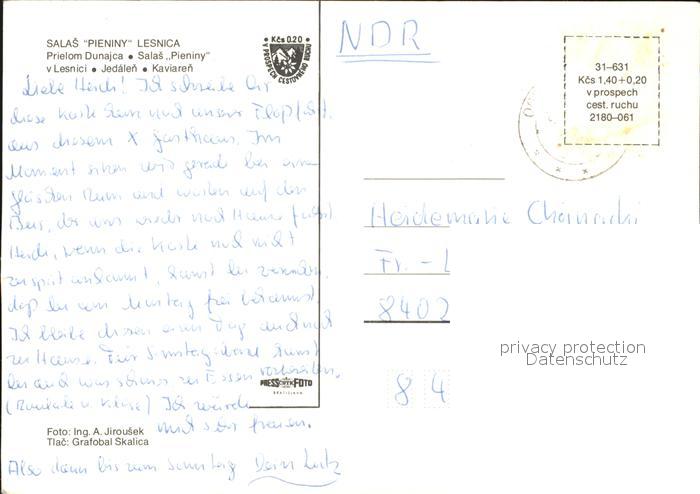 SALAŠ "PIENINY" LESNICA
Prielom Dunajca • Salaš „Pieniny"
v Lesnici • Jedáleň • Kaviareň
Kčs 0.20
V PROSPECH CESTOVNÉHO RUCHU
NDR
31–631
Kčs 1,40+0,20
v prospech
cest. ruchu
2180–061
Liebe Heidi! Ich schreibe Dir
diese Karte dann nach unserer Floßfahrt
aus diesem Gasthaus. Im
Moment sitzen wir gerade bei einem
Rum und warten auf den
Bus, der uns wieder nach Hause fährt.
Heidi, wenn die Karte noch nicht
zu spät ankommt, kannst du
daß du am Montag frei bekommst.
Ich bleibe diesen einen Tag auch noch
zu Hause. Für Sonntag abend kannst
du auch was schönes zu Essen vorbereiten.
Ich würde
mich sehr freuen.
Also dann bis zum Sonntag Dein Lutz
Heidemarie
Fr. - L
8402
84
PRESSFOTO
BRATISLAVA
Foto: Ing. A. Jiroušek
Tlač: Grafobal Skalica
privacy protection
Datenschutz